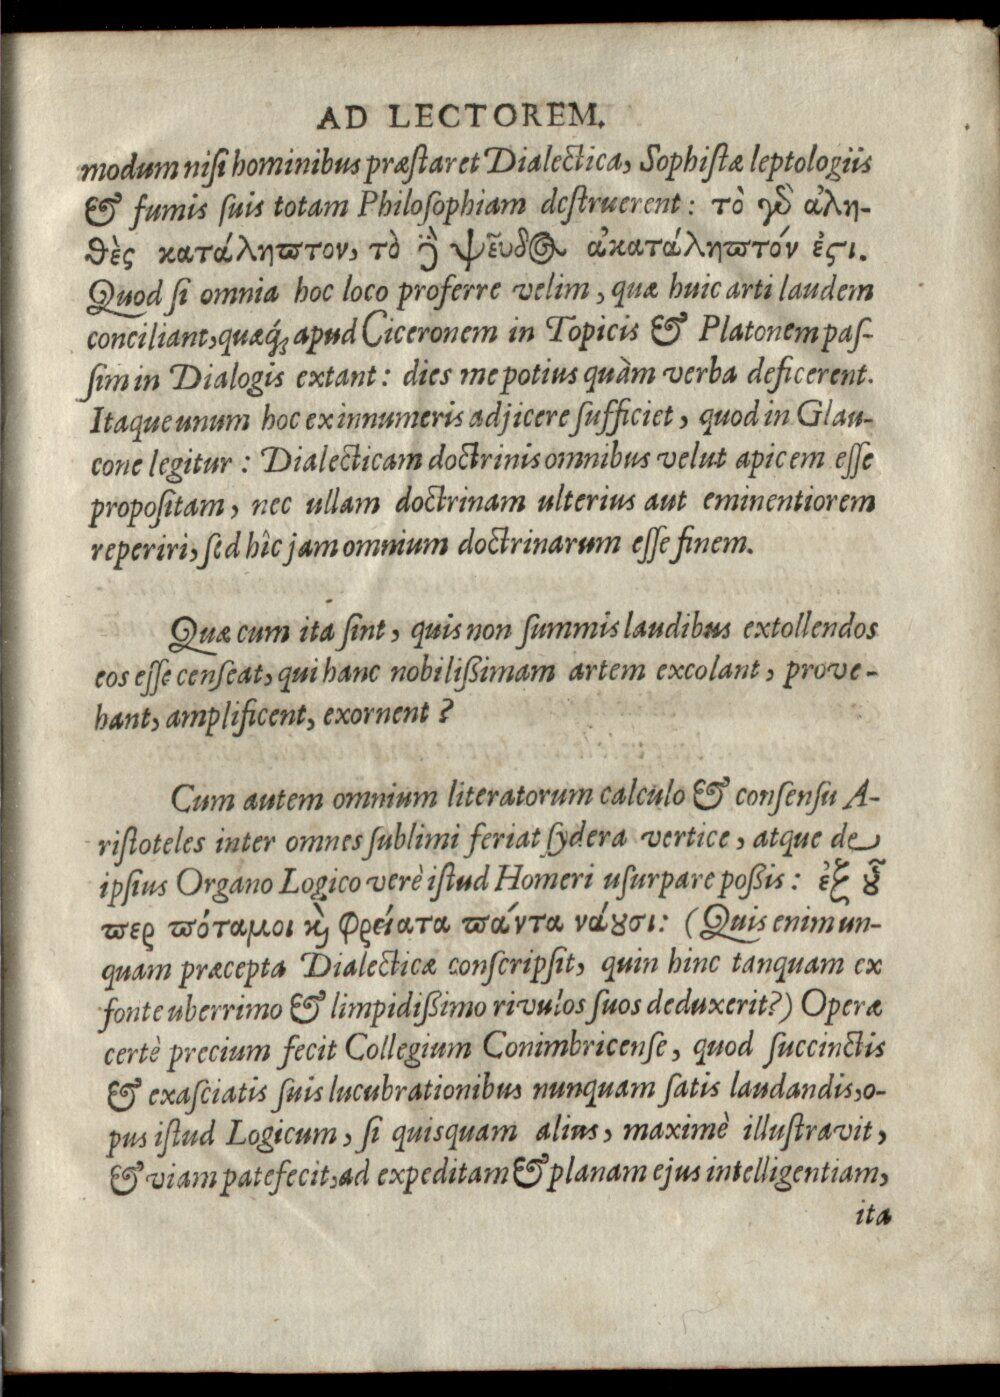 AD LECTOREM.
modum nisi hominibus præstaret Dialectica, Sophistæ leptologiis
& fumis suis totam Philosophiam destruerent: τὸ γὸ ἀλη-
θὲς κατάληπτον, τὸ ἢ ψεῦδος ἀκατάληπτόν ἐςι.
Quod si omnia hoc loco proferre velim, quæ huic arti laudem
conciliant, quæq́; apud Ciceronem in Topicis & Platonem pas-
sim in Dialogis extant: dies me potius quàm verba deficerent.
Itaque unum hoc ex innumeris adjicere sufficiet, quod in Glau-
cone legitur: Dialecticam doctrinis omnibus velut apicem esse
propositam, nec ullam doctrinam ulterius aut eminentiorem
reperiri, sed hîc jam omnium doctrinarum esse finem.
Quæ cum ita sint, quis non summis laudibus extollendos
eos esse censeat, qui hanc nobilißimam artem excolant, prove-
hant, amplificent, exornent?
Cum autem omnium literatorum calculo & consensu A-
ristoteles inter omnes sublimi feriat sydera vertice, atque de
ipsius Organo Logico verè istud Homeri usurpare poßis: ἐξ ȣ̃
περ πόταμοι ϗ φρείατα πάντα νάȣσι: (Quis enim un-
quam præcepta Dialecticæ conscripsit, quin hinc tanquam ex
fonte uberrimo & limpidißimo rivulos suos deduxerit?) Operæ
certè precium fecit Collegium Conimbricense, quod succinctis
& exasciatis suis lucubrationibus nunquam satis laudandis, o-
pus istud Logicum, si quisquam alius, maximè illustravit,
& viam patefecit, ad expeditam & planam ejus intelligentiam,
ita